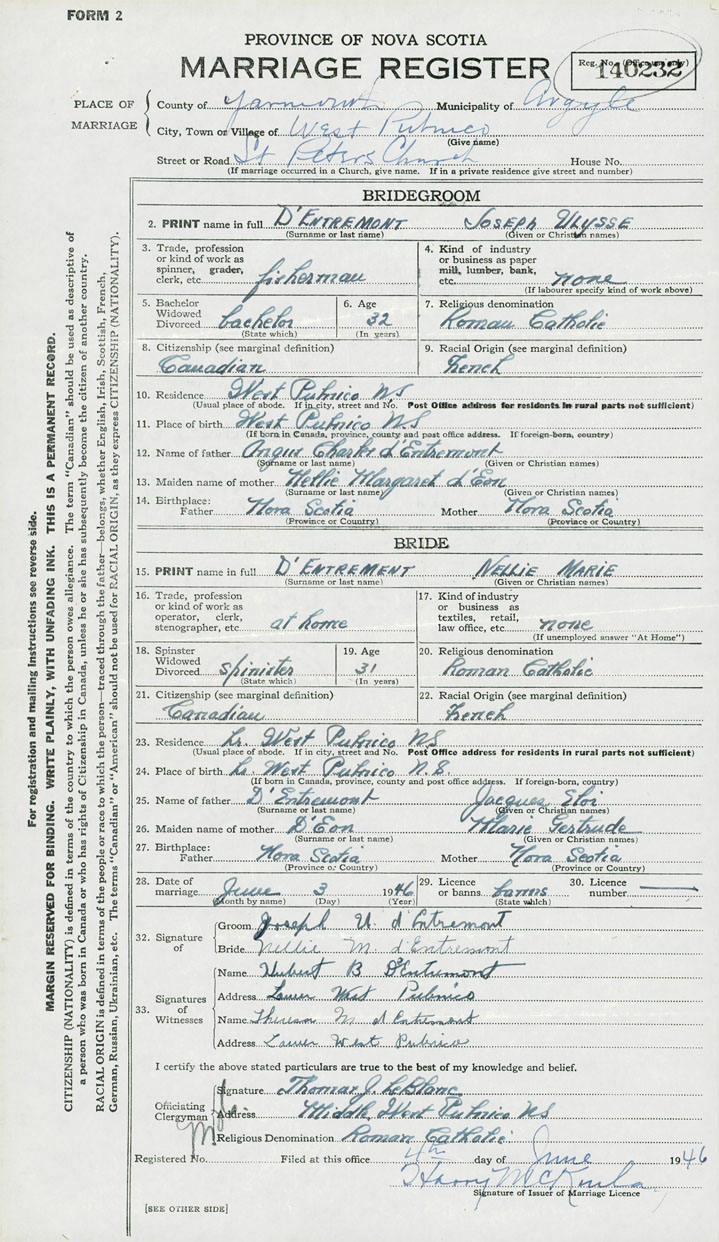 FORM 2
PROVINCE OF NOVA SCOTIA
MARRIAGE REGISTER
Reg. No. (Office use only)
140232
PLACE OF MARRIAGE
County of Yarmouth Municipality of Argyle
City, Town or Village of West Pubnico
(Give name)
Street or Road St Peters Church House No.
(If marriage occurred in a Church, give name. If in a private residence give street and number)
BRIDEGROOM
2. PRINT name in full D'ENTREMONT JOSEPH ULYSSE
(Surname or last name) (Given or Christian names)
3. Trade, profession or kind of work as spinner, grader, clerk, etc. fisherman
4. Kind of industry or business as paper mill, lumber, bank, etc. none
(If labourer specify kind of work above)
5. Bachelor Widowed Divorced bachelor
(State which)
6. Age 32
(In years)
7. Religious denomination
Roman Catholic
8. Citizenship (see marginal definition)
Canadian
9. Racial Origin (see marginal definition)
French
10. Residence West Pubnico N.S
(Usual place of abode. If in city, street and No. Post Office address for residents in rural parts not sufficient)
11. Place of birth West Pubnico N.S
(If born in Canada, province, county and post office address. If foreign-born, country)
12. Name of father Angus Charles d'Entremont
(Surname or last name) (Given or Christian names)
13. Maiden name of mother Nellie Margaret d'Eon
(Surname or last name) (Given or Christian names)
14. Birthplace:
Father Nova Scotia Mother Nova Scotia
(Province or Country) (Province or Country)
BRIDE
15. PRINT name in full D'ENTREMENT NELLIE MARIE
(Surname or last name) (Given or Christian names)
16. Trade, profession or kind of work as operator, clerk, stenographer, etc. at home
17. Kind of industry or business as textiles, retail, law office, etc. none
(If unemployed answer "At Home")
18. Spinster Widowed Divorced spinister
(State which)
19. Age 31
(In years)
20. Religious denomination
Roman Catholic
21. Citizenship (see marginal definition)
Canadian
22. Racial Origin (see marginal definition)
French
23. Residence Lr. West Pubnico N.S
(Usual place of abode. If in city, street and No. Post Office address for residents in rural parts not sufficient)
24. Place of birth Lr West Pubnico N.S.
(If born in Canada, province, county and post office address. If foreign-born, country)
25. Name of father D'Entremont Jacques Elor
(Surname or last name) (Given or Christian names)
26. Maiden name of mother D'Eon Marie Gertrude
(Surname or last name) (Given or Christian names)
27. Birthplace:
Father Nova Scotia Mother Nova Scotia
(Province or Country) (Province or Country)
28. Date of marriage June 3 1946
(Month by name) (Day) (Year)
29. Licence or banns banns
(State which)
30. Licence number
32. Signature of
Groom Joseph U d'Entremont
Bride Nellie M. d'Entremont
33. Signatures of Witnesses
Name Hubert B D'Entremont
Address Lower West Pubnico
Name Theresa M d'Entremont
Address Lower West Pubnico
I certify the above stated particulars are true to the best of my knowledge and belief.
Officiating Clergyman
Signature Thomas J. LeBlanc
Address Middle West Pubnico N.S
Religious Denomination Roman Catholic
Registered No. Filed at this office 4th day of June 1946
Harry
Signature of Issuer of Marriage Licence
[SEE OTHER SIDE]
For registration and mailing instructions see reverse side.
MARGIN RESERVED FOR BINDING. WRITE PLAINLY, WITH UNFADING INK. THIS IS A PERMANENT RECORD.
CITIZENSHIP (NATIONALITY) is defined in terms of the country to which the person owes allegiance. The term "Canadian" should be used as descriptive of
a person who was born in Canada or who has rights of Citizenship in Canada, unless he or she has subsequently become the citizen of another country.
RACIAL ORIGIN is defined in terms of the people or race to which the person—traced through the father—belongs, whether English, Irish, Scottish, French,
German, Russian, Ukrainian, etc. The terms "Canadian" or "American" should not be used for RACIAL ORIGIN, as they express CITIZENSHIP (NATIONALITY).